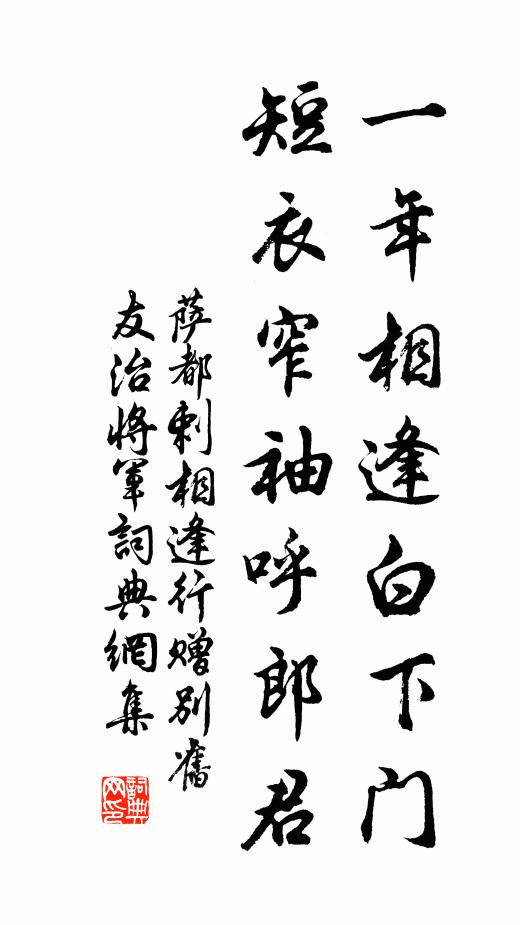 一年相逢白下门
短衣窄袖呼郎君
萨都剌相逢行赠别舊
友治将軍詞典網集
詞典
网印